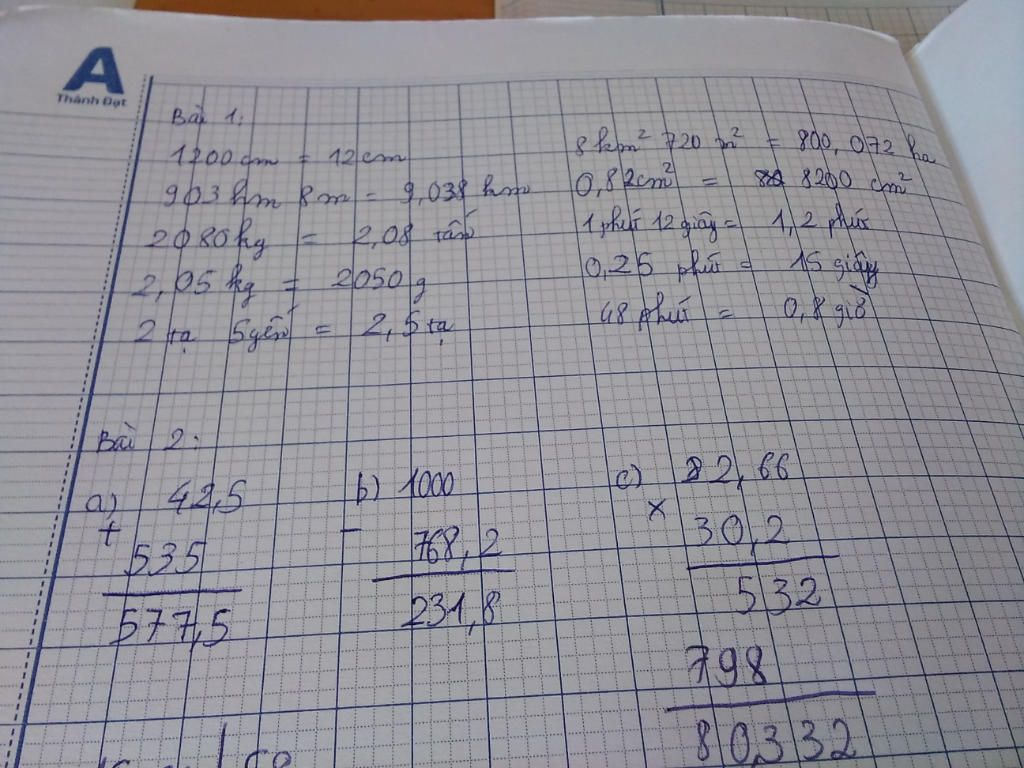 A
Thành Đạt
Bài 1:
1200cm = 12cm
903km 8m = 9,038 km
2080kg = 2,08 tấn
2,05 kg = 2050 g
2 tạ 5yến = 2,5 tạ
8km² 720 m² = 800,072 ha
0,82cm² = 8200 cm²
1 phút 12 giây = 1,2 phút
0,25 phút = 15 giây
48 phút = 0,8 giờ
Bài 2:
a) 42,5
+
535
577,5
b) 1000
-
768,2
231,8
c) 22,66
x
30,2
532
798
80332